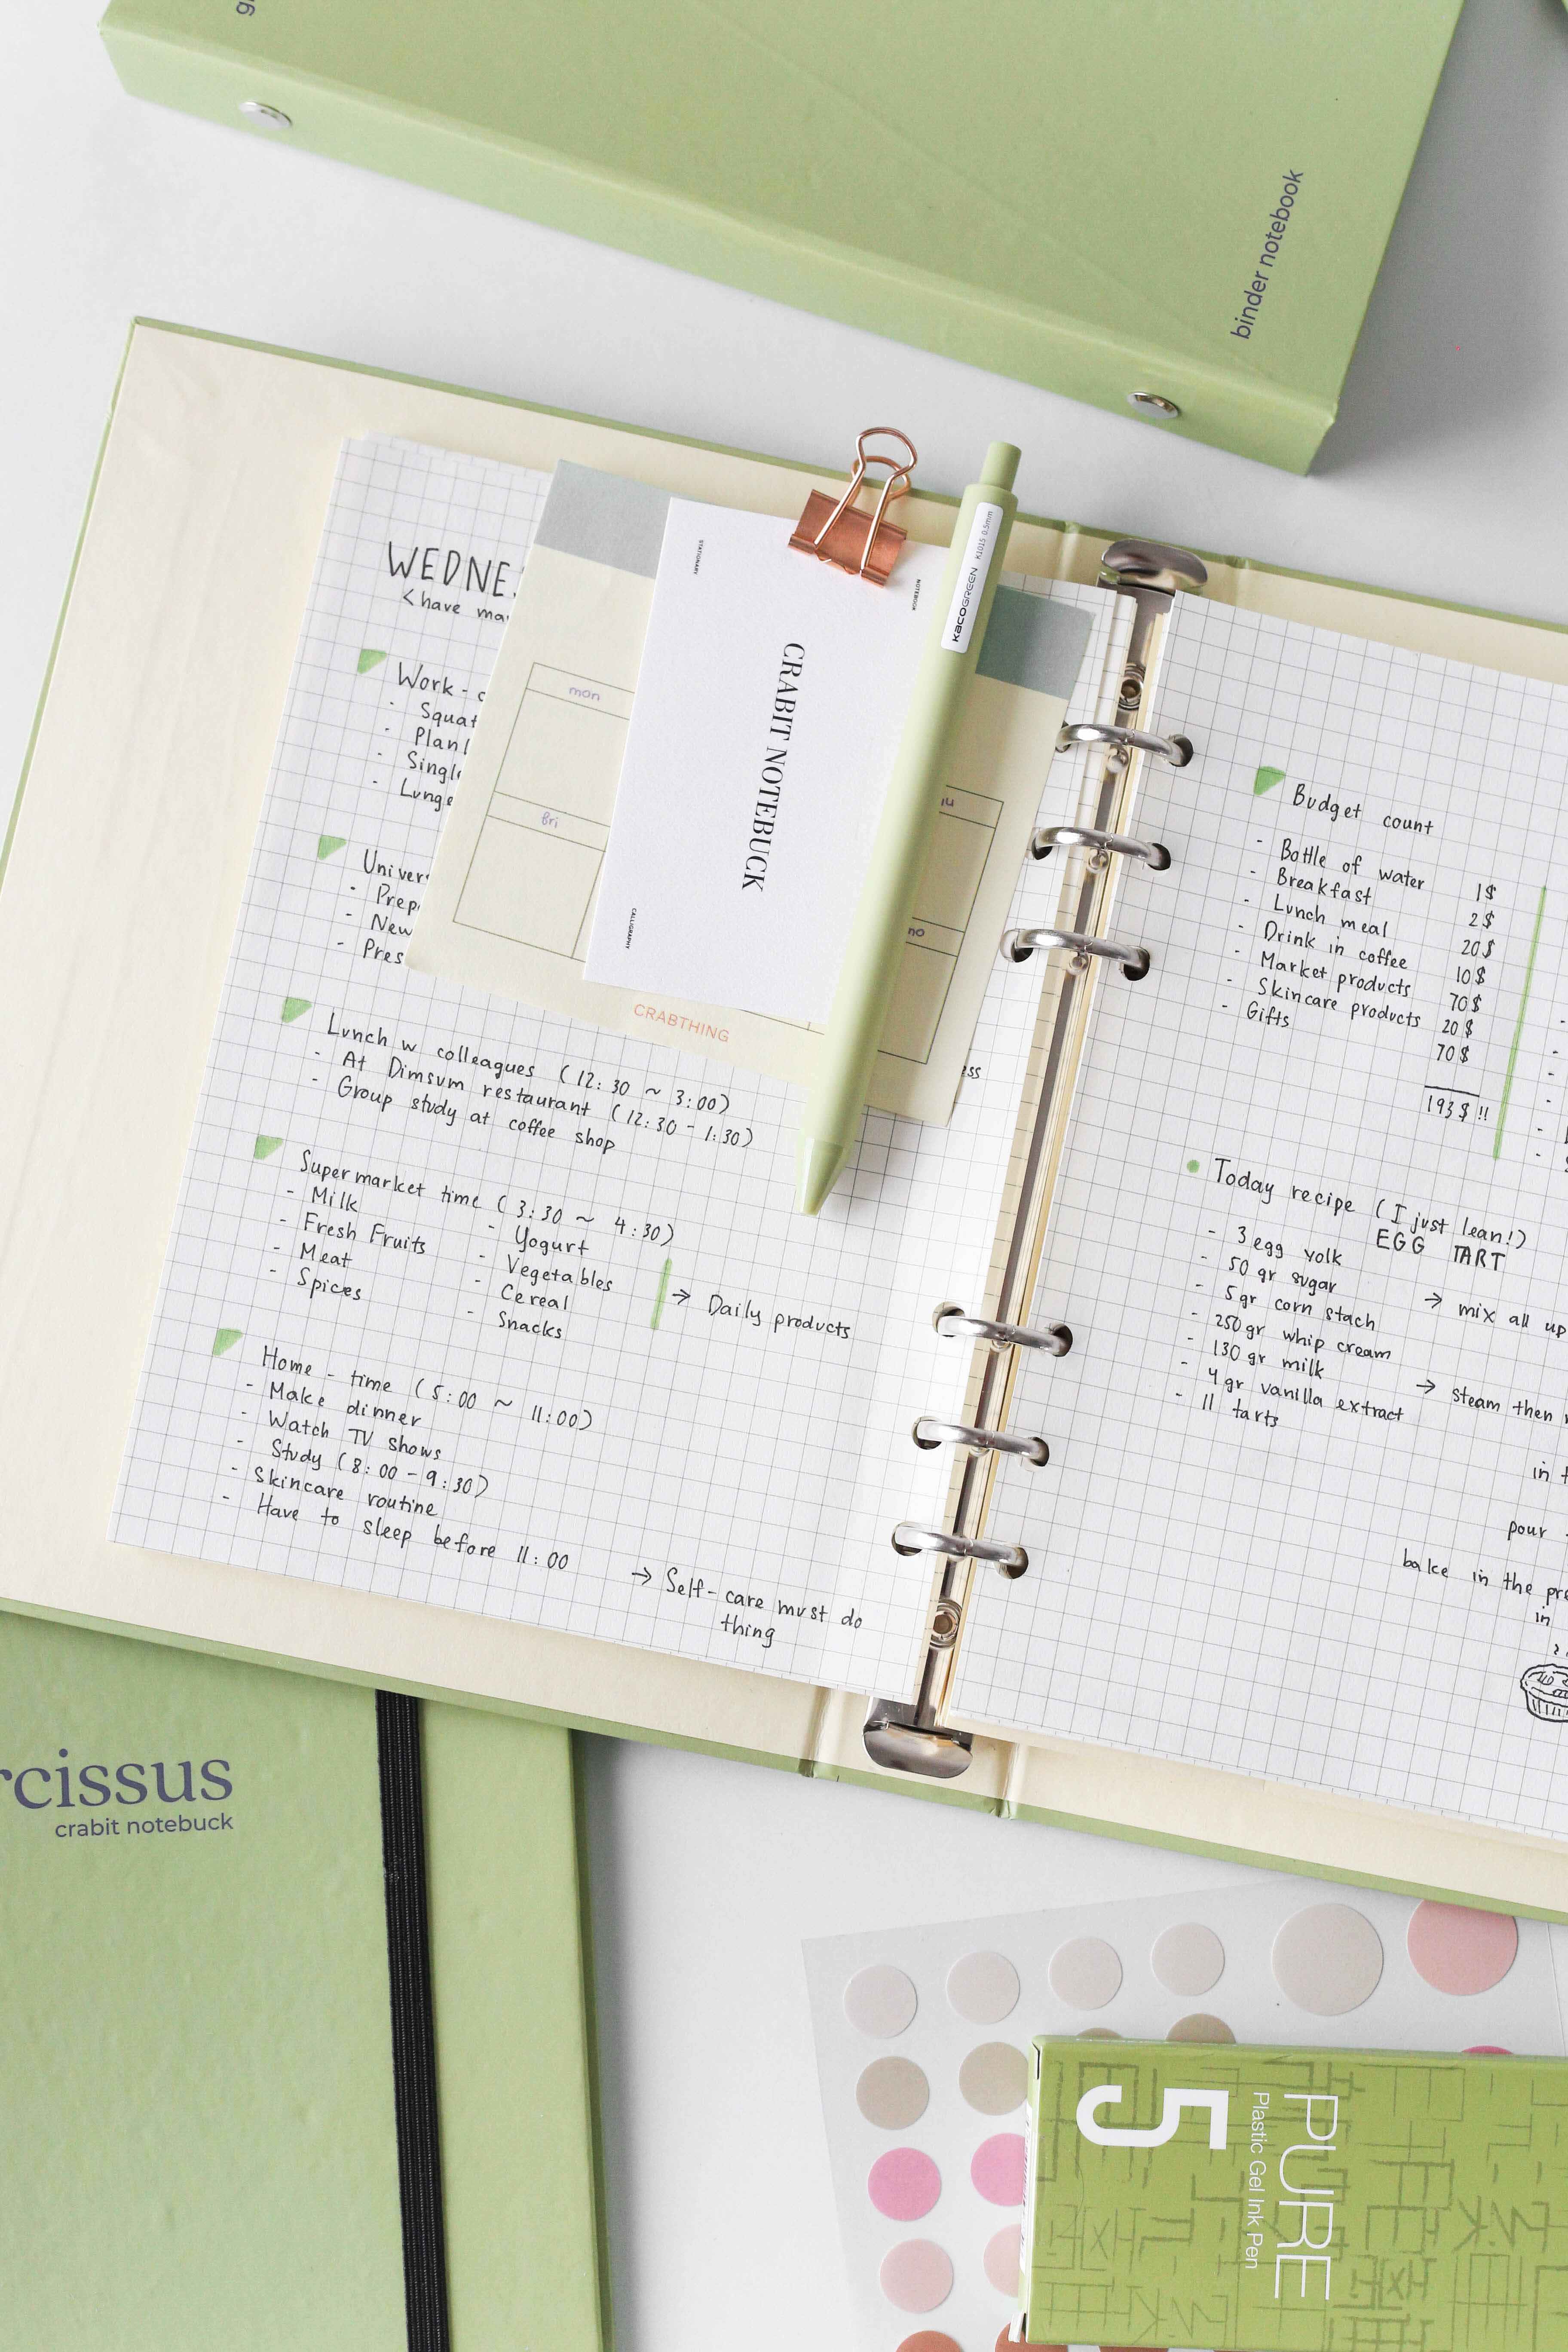 binder notebook
WEDNE
<have ma
Work-
Squat
Plan
Singl
Lunge
Univer
- Prep
- New
- Pres
Lunch w colleagues (12:30 ~ 3:00)
- At Dimsum restaurant (12:30 - 1:30)
- Group study at coffee shop
Supermarket time (3:30 ~ 4:30)
- Milk
- Fresh Fruits
- Meat
- Spices
- Yogurt
- Vegetables
- Cereal
- Snacks
→ Daily products
Home - time (5:00 ~ 11:00)
- Make dinner
- Watch TV shows
- Study (8:00 - 9:30)
- Skincare routine
- Have to sleep before 11:00
→ Self-care must do
thing
mon
fri
CRABTHING
STATIONARY
NOTEBUCK
CRABIT NOTEBUCK
CALLIGRAPHY
KACOGREEN K1015 0.5mm
Budget count
- Bottle of water 1$
- Breakfast 2$
- Lunch meal 20$
- Drink in coffee 10$
- Market products 70$
- Skincare products 20$
- Gifts 70$
193$!!
Today recipe (I just lean!)
EGG TART
- 3 egg yolk
- 50 gr sugar
- 5 gr corn stach
- 250 gr whip cream
- 130 gr milk
- 4 gr vanilla extract
- 11 tarts
→ mix all up
→ steam then
in
pour
bake in the pre
in
rcissus
crabit notebuck
PURE
Plastic Gel Ink Pen
5